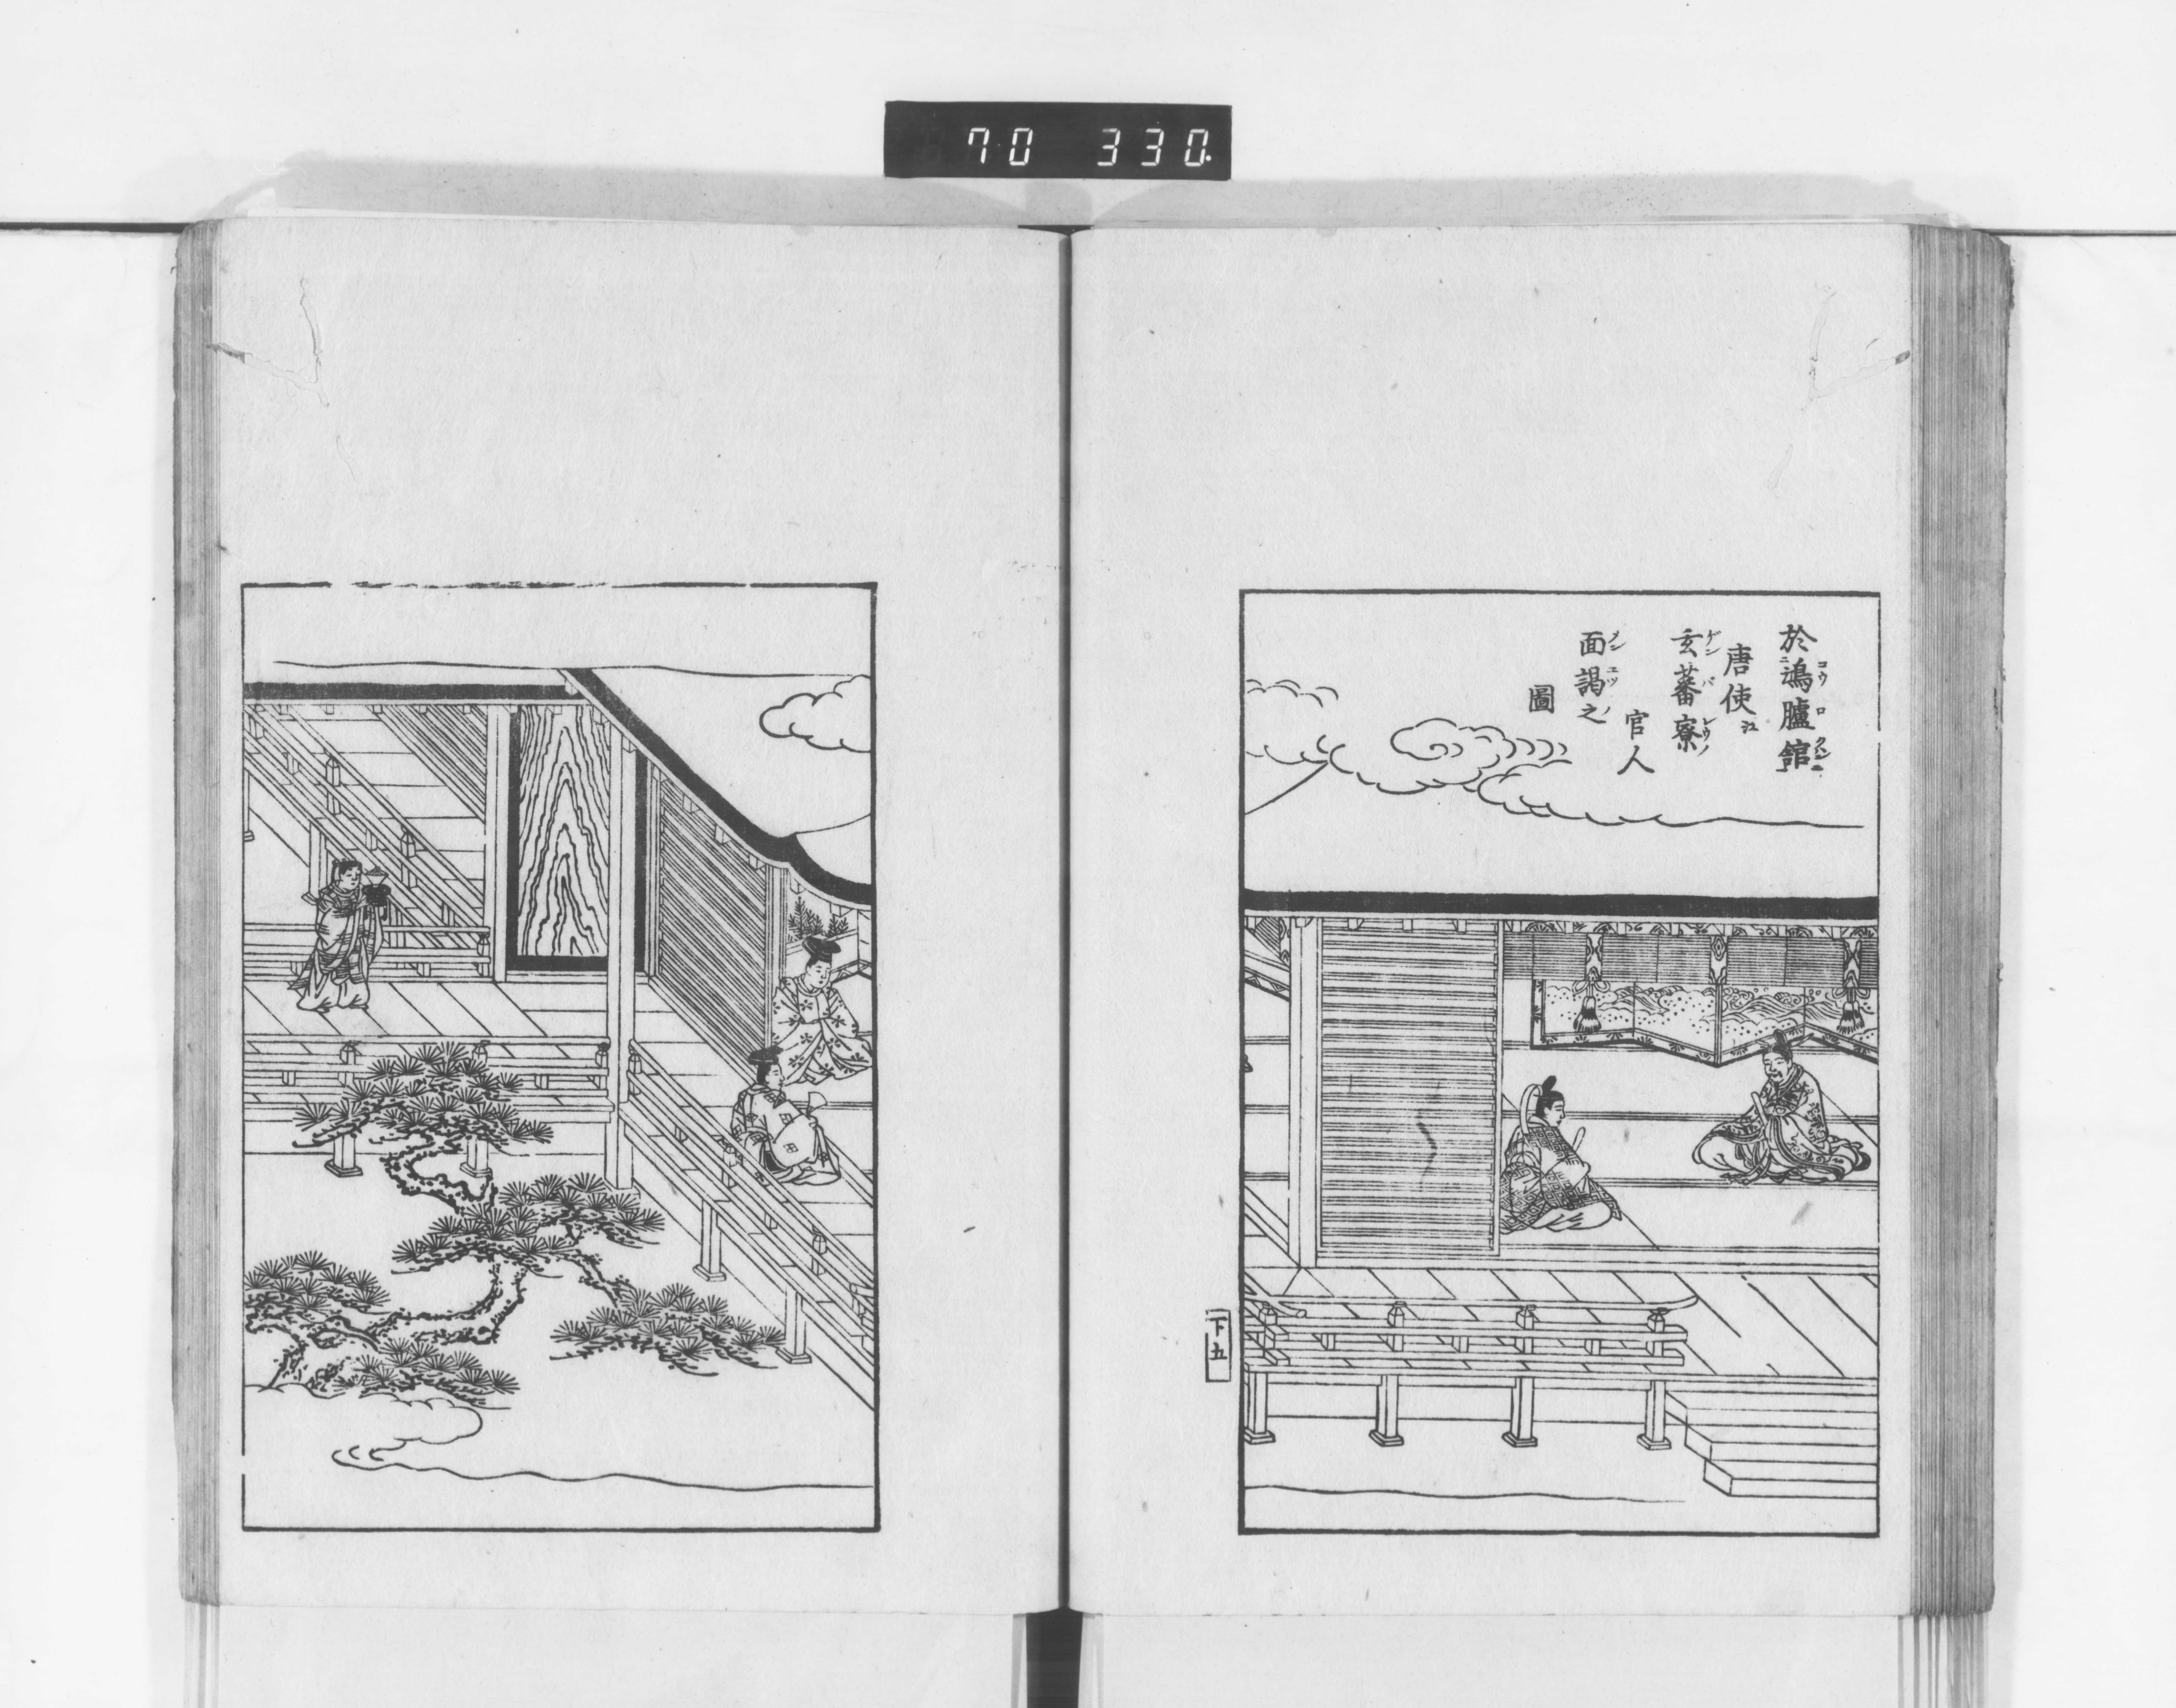 70 330.
於鴻臚館
唐使江
玄蕃寮
官人
面謁之
圖
下五